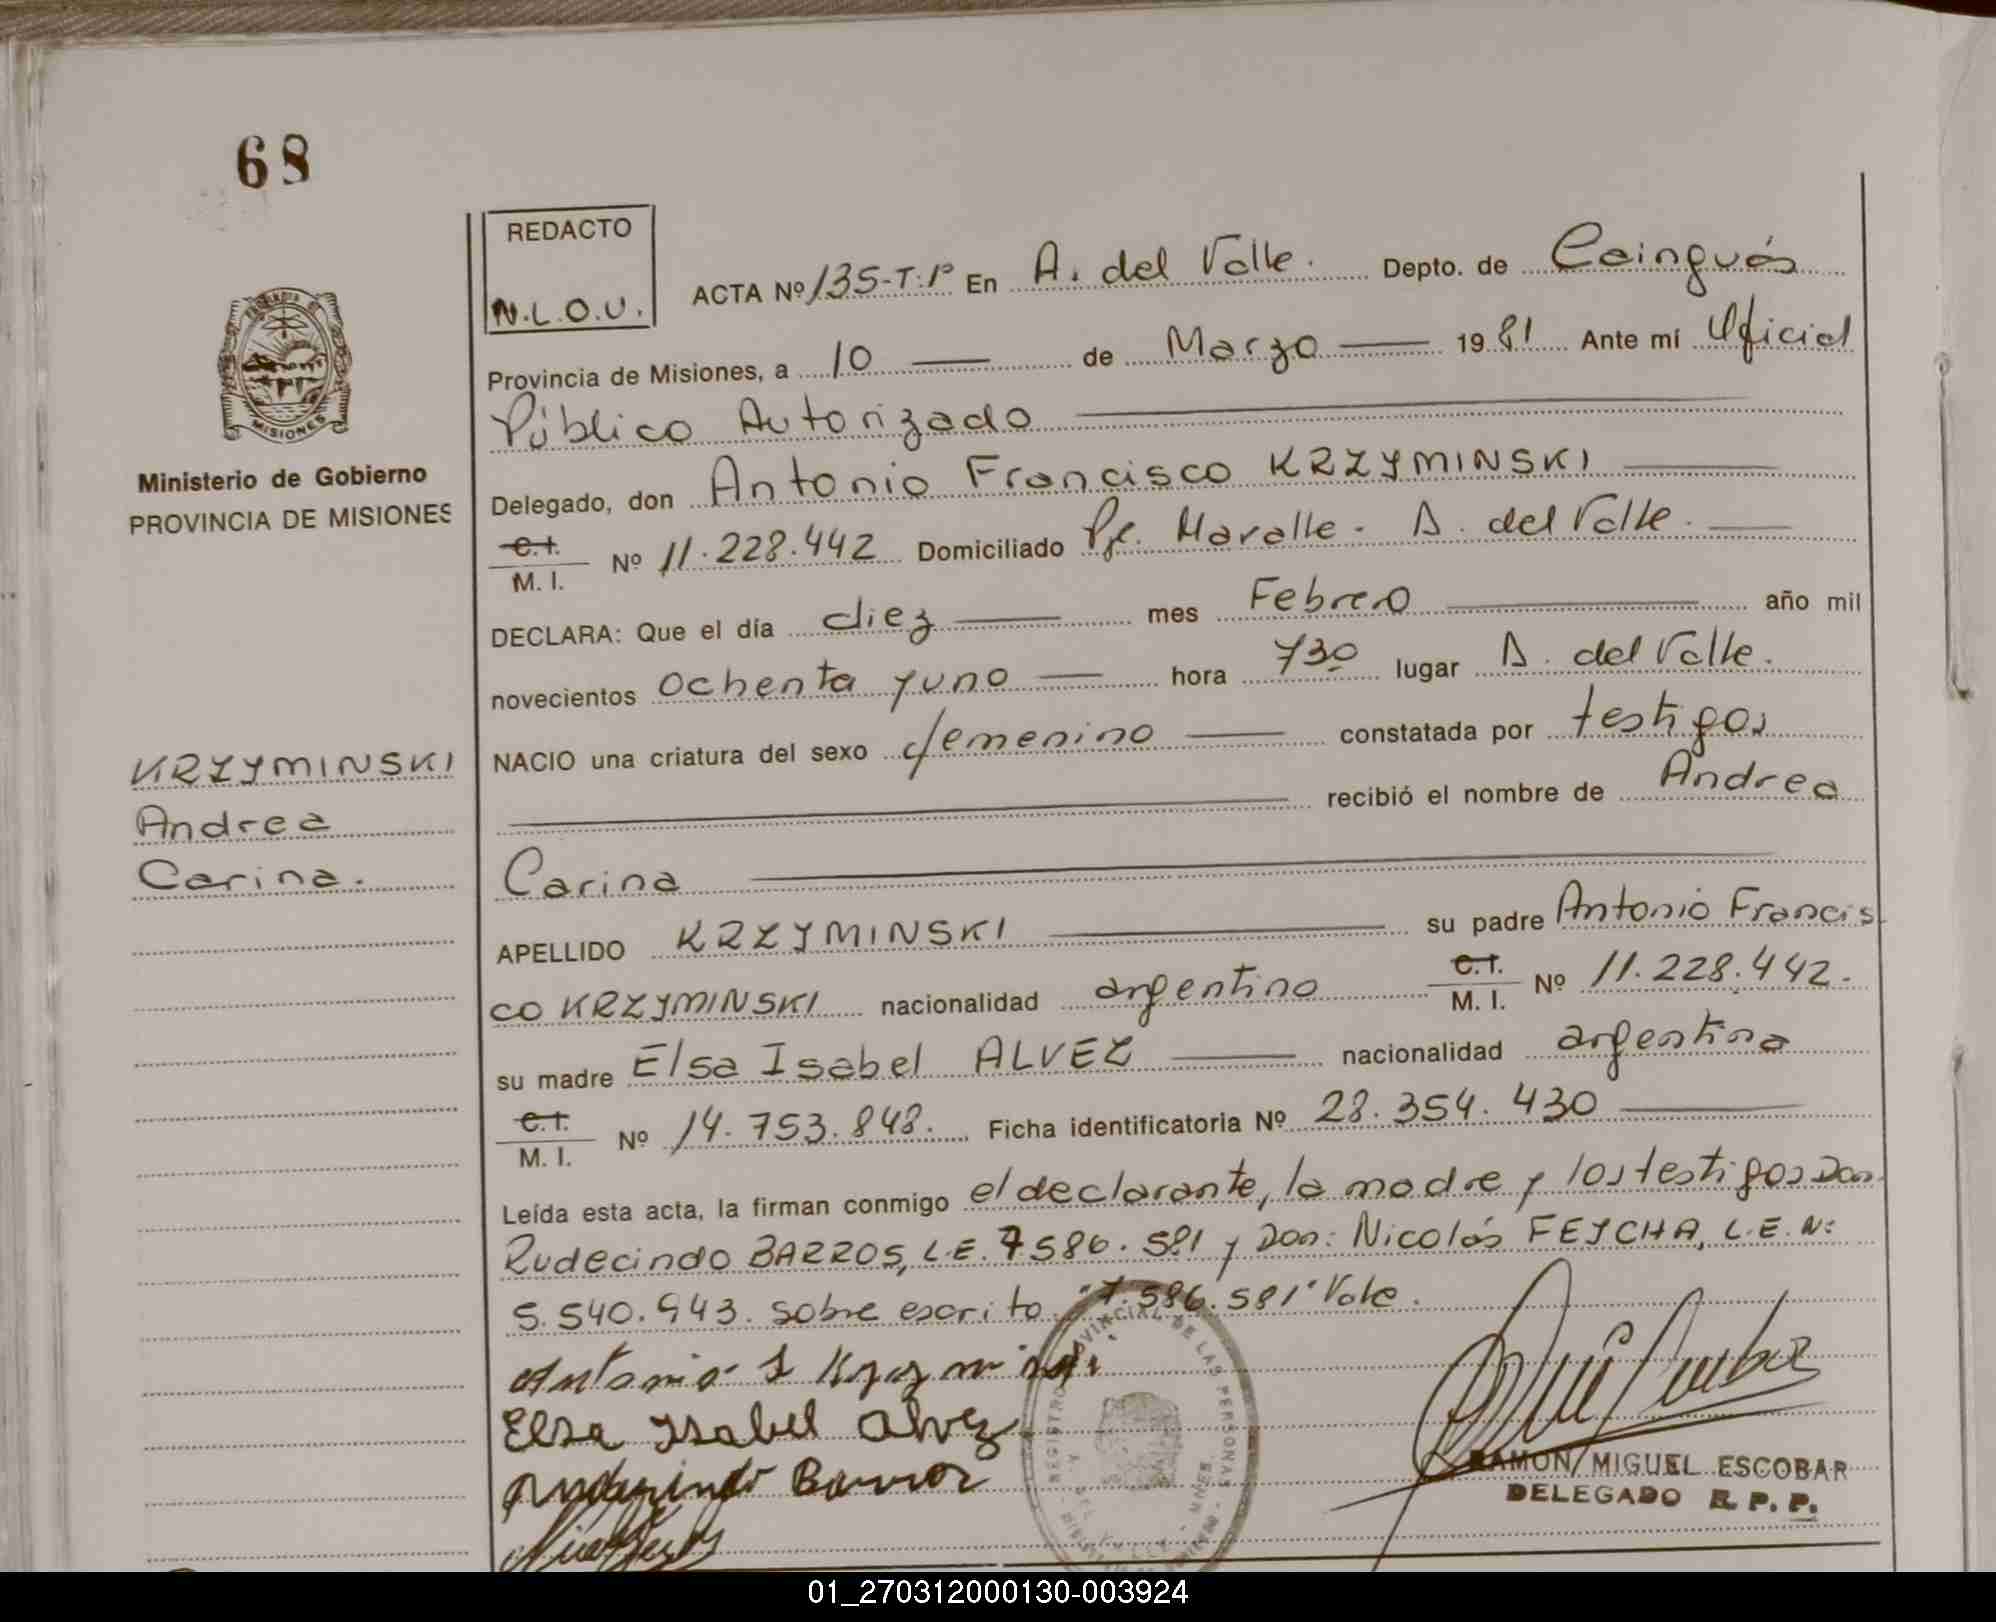 68
REDACTO
N.L.O.U.
ACTA Nº 135-T:1º En A. del Valle. Depto. de Cainguás
Provincia de Misiones, a 10 de Marzo 1981 Ante mí Oficial
Público Autorizado
MISIONES
Ministerio de Gobierno
PROVINCIA DE MISIONES
Delegado, don Antonio Francisco KRZYMINSKI
C.I.
M. I. Nº 11.228.442 Domiciliado Pje. Maralle - A. del Valle.
DECLARA: Que el día diez mes Febrero año mil
novecientos ochenta y uno hora 730 lugar A. del Valle.
KRZYMINSKI
Andrea
Carina.
NACIO una criatura del sexo femenino constatada por testigos
recibió el nombre de Andrea
Carina
APELLIDO KRZYMINSKI su padre Antonio Francis
co KRZYMINSKI nacionalidad argentino C.I. M. I. Nº 11.228.442.
su madre Elsa Isabel ALVEZ nacionalidad argentina
C.I.
M. I. Nº 14.753.848. Ficha identificatoria Nº 28.354.430
Leída esta acta, la firman conmigo el declarante, la madre y los testigos Don
Rudecindo BARROS, L.E. 7586.581 y Don: Nicolás FEJCHA, L.E. N:
5.540.943. sobre escrito: "7.586.581" Vale.
Elsa Isabel Alvez
Rudecindo Barros
REGISTRO PROVINCIAL DE LAS PERSONAS
RAMON MIGUEL ESCOBAR
DELEGADO R. P. P.
01_270312000130-003924